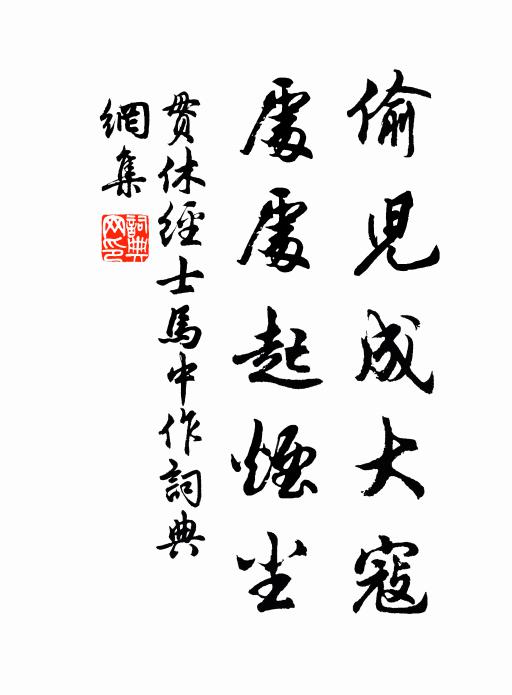 偷兒成大寇
處處起煙尘
贯休經士馬中作詞典
網集
詞典网印